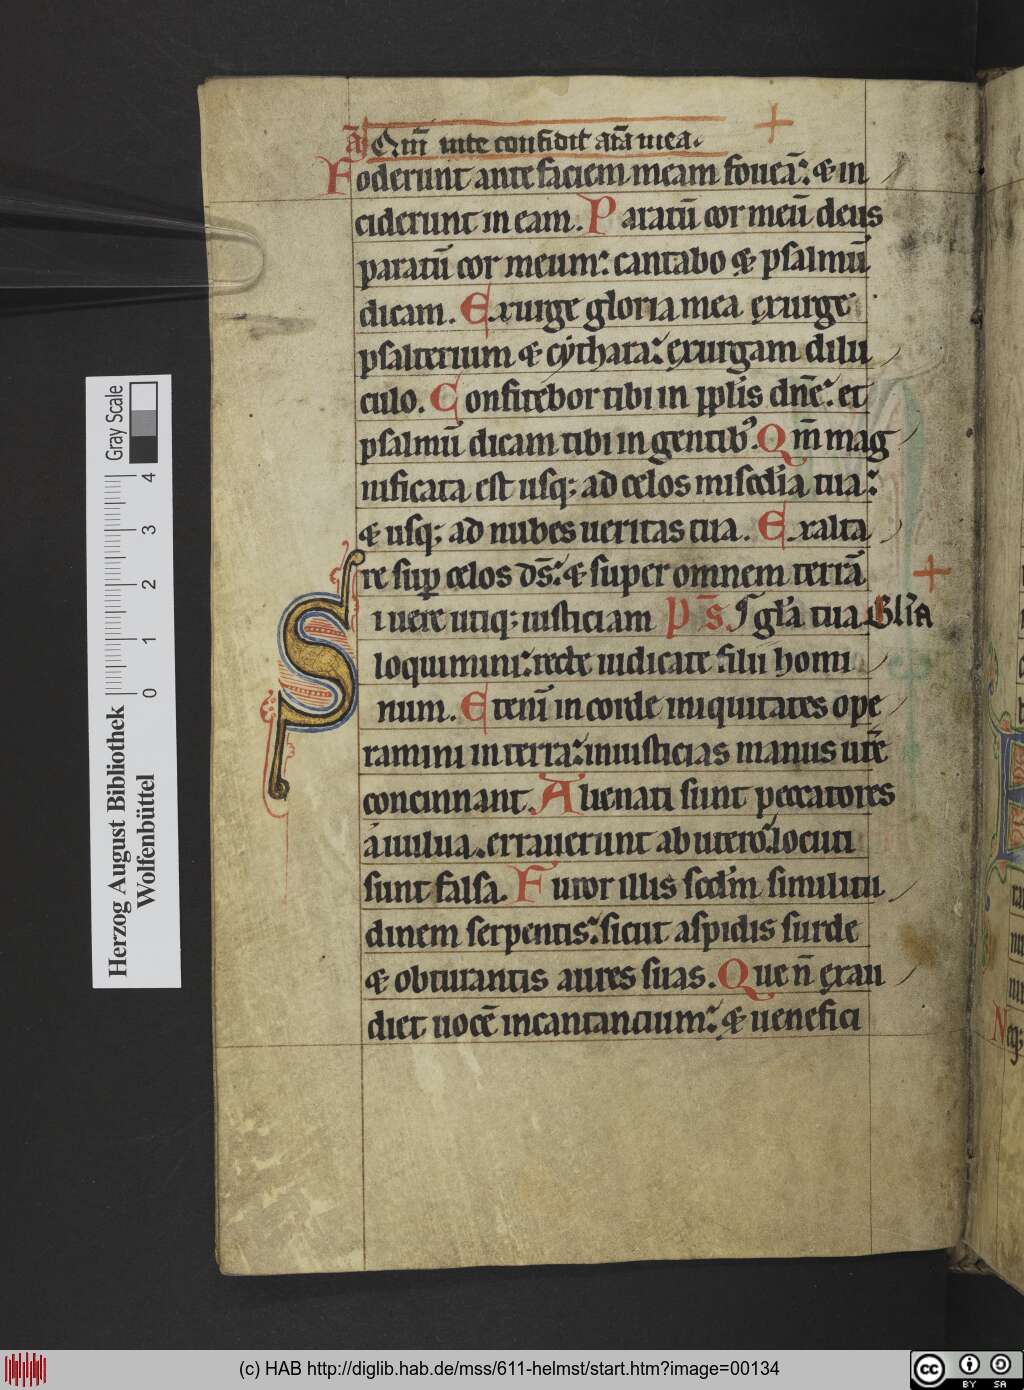 a᷎ Qm̄ inte confidit aīa mea.
Foderunt ante faciem meam foueā: & in
ciderunt in eam. Paratū cor meū deus
paratū cor meum: cantabo & psalmū
dicam. Exurge gloria mea exurge
psalterium & cythara: exurgam dilu
culo. Confitebor tibi in pp̄lis dn̄e: et
psalmū dicam tibi in gentib⁹. Qm̄ mag
nificata est usq; ad celos misc̄dia tua:
& usq; ad nubes ueritas tua. Exalta
re suꝑ celos ds̄: & super omnem terrā
gl̄a tua Gl̄ia
Si uere utiq; iusticiam Ps̄
loquimini: recte iudicate filii homi
num. Etenī in corde iniquitates ope
ramini in terra: iniusticias manus ur̄e
concinnant. Alienati sunt peccatores
a uulua. errauerunt ab utero: locuti
sunt falsa. Furor illis scd̄m similitu
dinem serpentis: sicut aspidis surde
& obturantis aures suas. Que n̄ exau
diet uocē incantancium: & uenefici
Herzog August Bibliothek
Wolfenbüttel
0 1 2 3 4
Gray Scale
(c) HAB http://diglib.hab.de/mss/611-helmst/start.htm?image=00134
cc BY SA